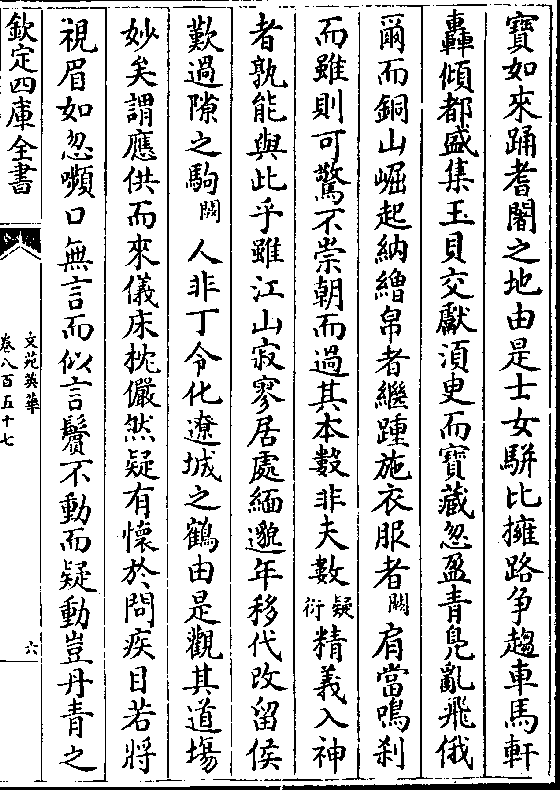 寶如來踊耆闍之地由是士女駢比擁路争趨車馬軒
轟傾都盛集玉貝交獻湏臾而寶藏忽盈青鳬亂飛俄
爾而銅山崛起納繒帛者繼踵施衣服者闕肩當鳴刹
而雖則可驚不崇朝而過其本數非夫數疑衍精義入神
者孰能與此乎雖江山寂寥居處緬邈年移代改留侯
歎過隙之駒闕人非丁令化遼城之鶴由是觀其道場
妙矣謂應供而來儀床枕儼然疑有懷於問疾目若將
視眉如忽嚬口無言而似言鬢不動而疑動豈丹青之
欽定四庫全書
文苑英華
卷八百五十七
六